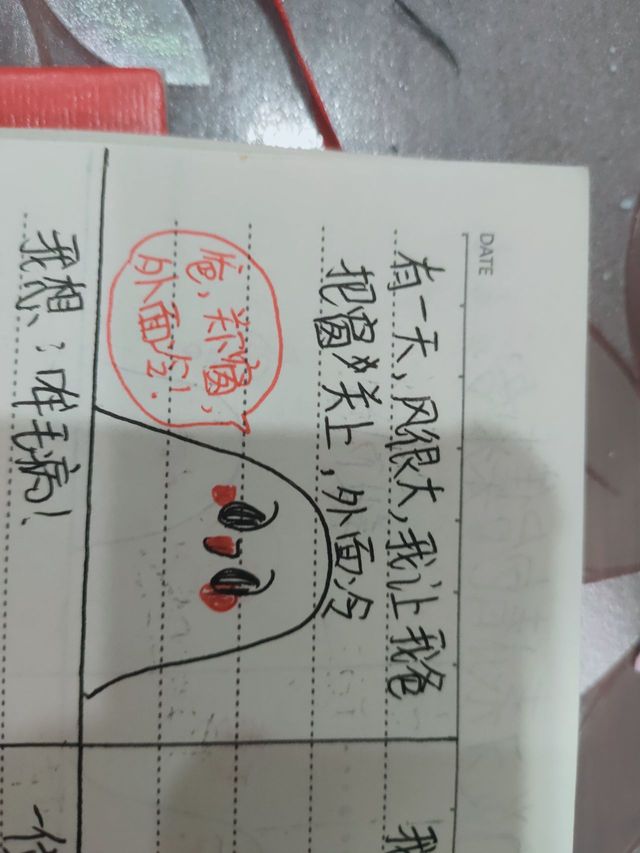 DATE
有一天,风很大,我让我爸
把窗关上,外面冷
爸,关窗,
外面冷!
我想:咋毛病!
我